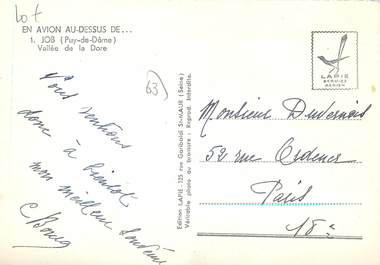 Lot
EN AVION AU-DESSUS DE...
1. JOB (Puy-de-Dôme)
Vallée de la Dore
63
LAPIE
SERVICE
AERIEN
Vous
donc
à bientôt
mon meilleur souvenir
Edition LAPIE - 125 rue Garibaldi St-MAUR (Seine)
Véritable photo au bromure : Reprod. Interdite.
Monsieur Duvernois
52 rue Ordener
Paris
18e